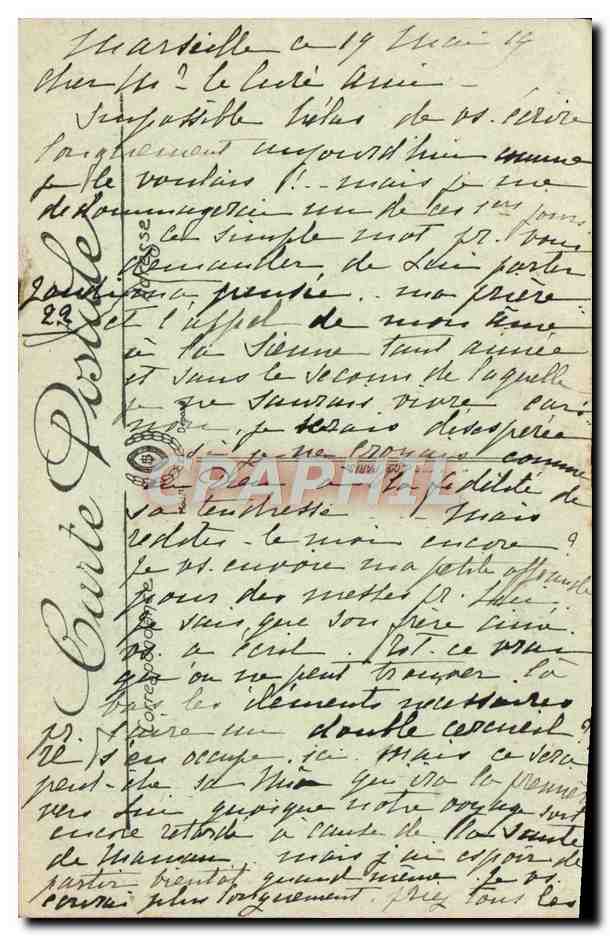 Marseille ce 19 Mai 19
Cher Mr. le Curé Ami -
Impossible hélas de vs. écrire
longuement aujourd'hui comme
je le voulais !.. mais je me
dedommagerai un de ces 1ers jours
Ce simple mot pr. vous
demander de Lui porter
Jeudi ma pensée .. ma prière
22 et l'appel de mon âme
à la Sienne tant aimée
et sans le secours de laquelle
je ne saurais vivre car
non, je serais désespérée
si je ne croyais comme
en Dieu à la fidélité de
sa tendresse ! Mais
redites-le moi encore ?
je vs. envoie ma petite offrande
pour des messes pr. Lui.
je sais que son frère aîné
vs. a écrit. Est-ce vrai
qu'on ne peut trouver là
bas les éléments nécessaires
pr. faire un double cercueil ?
s'en occupe ici mais ce sera
peut-être sa Mère qui ira la première
vers Lui quoique notre voyage soit
encore retardé à cause de la santé
de Maman mais j'ai espoir de
partir bientot quand même. Je vs.
écrirai plus longuement. priez tous les
Carte Postale
Correspondance
Adresse
CPAPHIL
PARIS